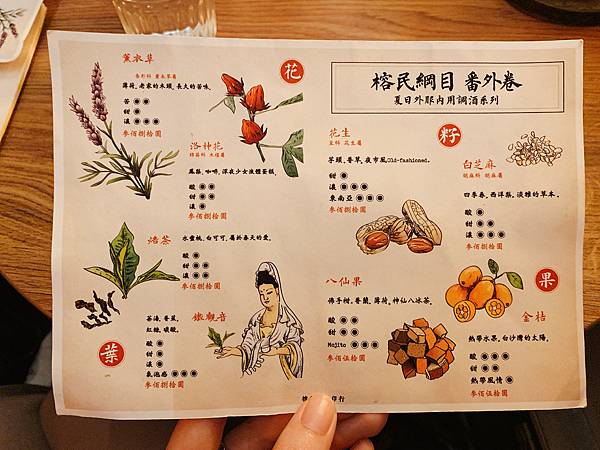 榕民綱目 番外卷
夏日外服內用調酒系列
花
薰衣草
唇形科 薰衣草屬
薄荷, 老家的木頭, 長大的苦味.
苦 ◉◉
甜 ◉
濃 ◉◉◉
參佰捌拾圓
洛神花
錦葵科 木槿屬
鳳梨, 咖啡, 深夜少女液體蛋糕.
酸 ◉◉
甜 ◉◉
濃 ◉
參佰捌拾圓
焙茶
水蜜桃, 白可可, 屬於春天的愛.
酸 ◉
甜 ◉◉
濃 ◉◉
參佰捌拾圓
鐵觀音
茶湯, 香蕉,
紅糖, 碳酸.
酸 ◉
甜 ◉
濃 ◉
氣泡感 ◉◉◉
參佰捌拾圓
葉
籽
花生
豆科 花生屬
芋頭, 香草, 夜市風Old-fashioned.
甜 ◉
濃 ◉◉◉
東南亞 ◉◉◉
參佰捌拾圓
白芝麻
胡麻科 胡麻屬
四季春, 西洋梨, 淡雅的草本.
酸 ◉
甜 ◉◉
濃 ◉◉◉
參佰捌拾圓
八仙果
佛手柑, 香艾, 薄荷, 神仙八冰茶.
酸 ◉◉
甜 ◉◉
Mojito ◉◉◉
參佰伍拾圓
果
金桔
熱帶水果, 白沙灣的太陽.
酸 ◉◉◉
甜 ◉◉
熱帶風情 ◉
參佰伍拾圓
印行